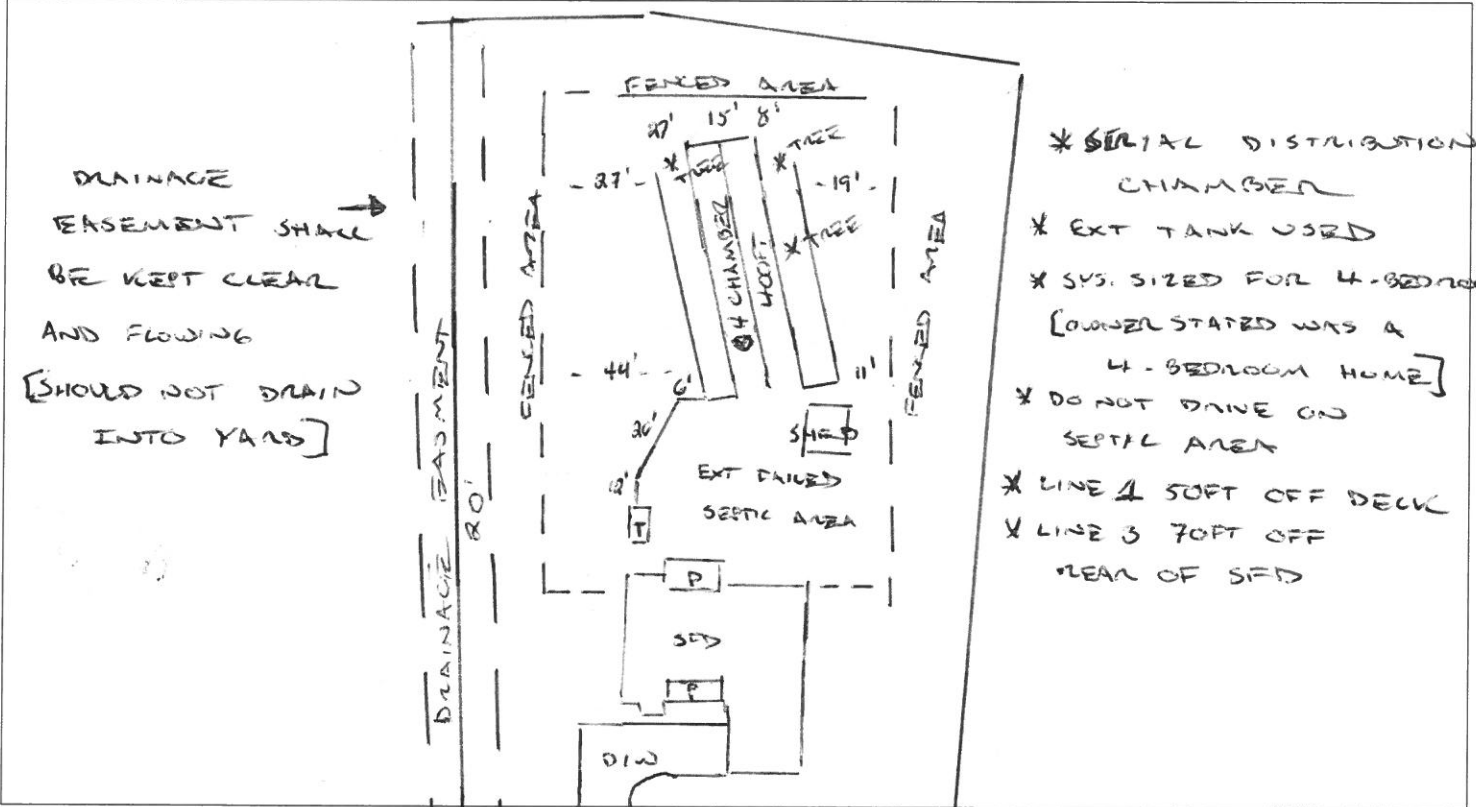 DRAINAGE
EASEMENT SHALL
BE KEPT CLEAR
AND FLOWING
[SHOULD NOT DRAIN
INTO YARD]
DRAINAGE EASMENT
20'
FENCED AREA
FENCED AREA
FENCED AREA
27'
15'
8'
* TREE
* TREE
* TREE
- 27' -
- 19' -
4 CHAMBER
400FT
- 44' -
6'
11'
SHED
EXT FAILED
SEPTIC AREA
T
P
SFD
P
D/W
* SERIAL DISTRIBUTION
CHAMBER
* EXT TANK USED
* SYS. SIZED FOR 4-BEDROO
[OWNER STATED WAS A
4-BEDROOM HOME]
* DO NOT DRIVE ON
SEPTIC AREA
* LINE 1 50FT OFF DECK
* LINE 3 70FT OFF
REAR OF SFD